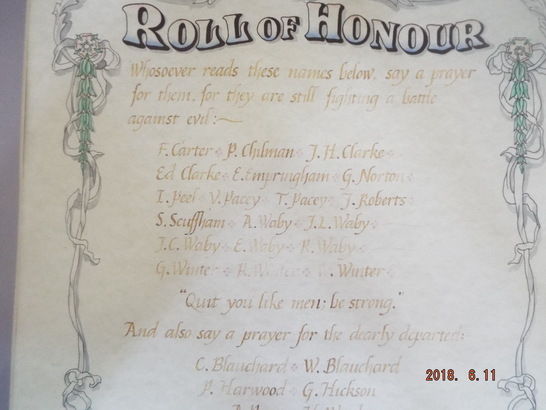 ROLL OF HONOUR
Whosoever reads these names below, say a prayer
for them, for they are still fighting a battle
against evil:~
F. Carter P. Chilman J. H. Clarke
Ed Clarke E. Empringham G. Norton
I. Peel V. Pacey T. Pacey J. Roberts
S. Scuffham A. Waby J. L. Waby
J. C. Waby E. Waby R. Waby
G. Winter Winter
"Quit you like men; be strong."
And also say a prayer for the dearly departed:
C. Blanchard W. Blanchard
P. Harwood G. Hickson
2018. 6.11